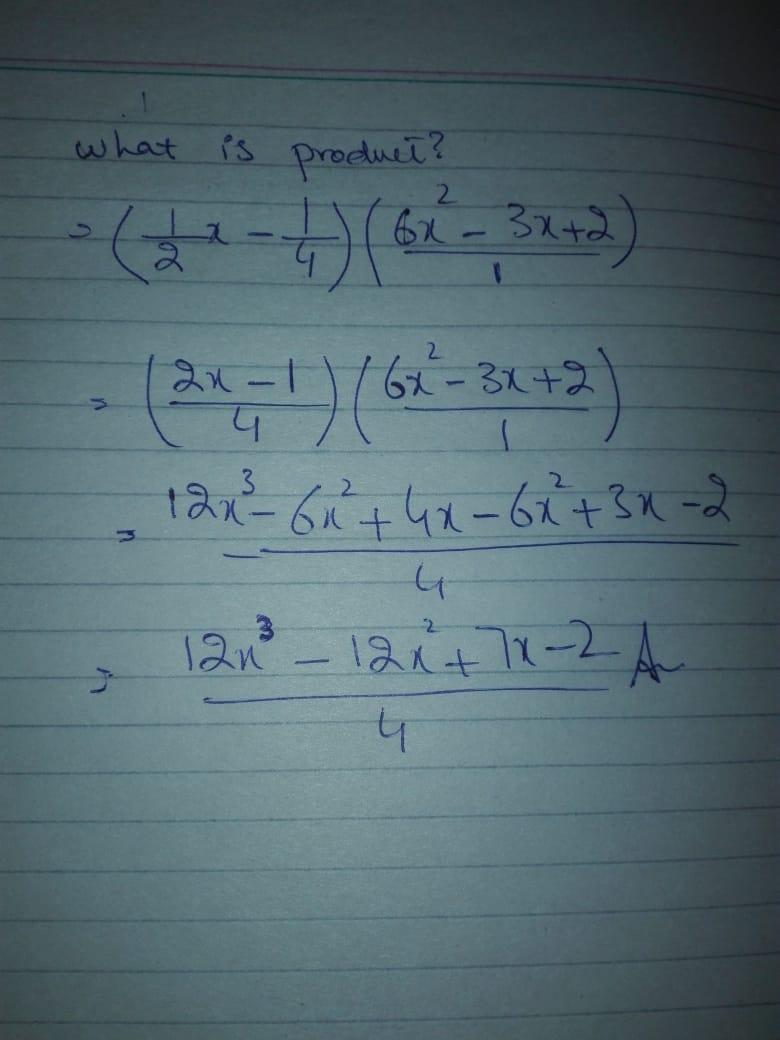 what is product?
= (1/2 x - 1/4) ((6x² - 3x+2)/1)
= ((2x-1)/4) ((6x² - 3x+2)/1)
= (12x³ - 6x² + 4x - 6x² + 3x - 2)/4
= (12x³ - 12x² + 7x - 2)/4